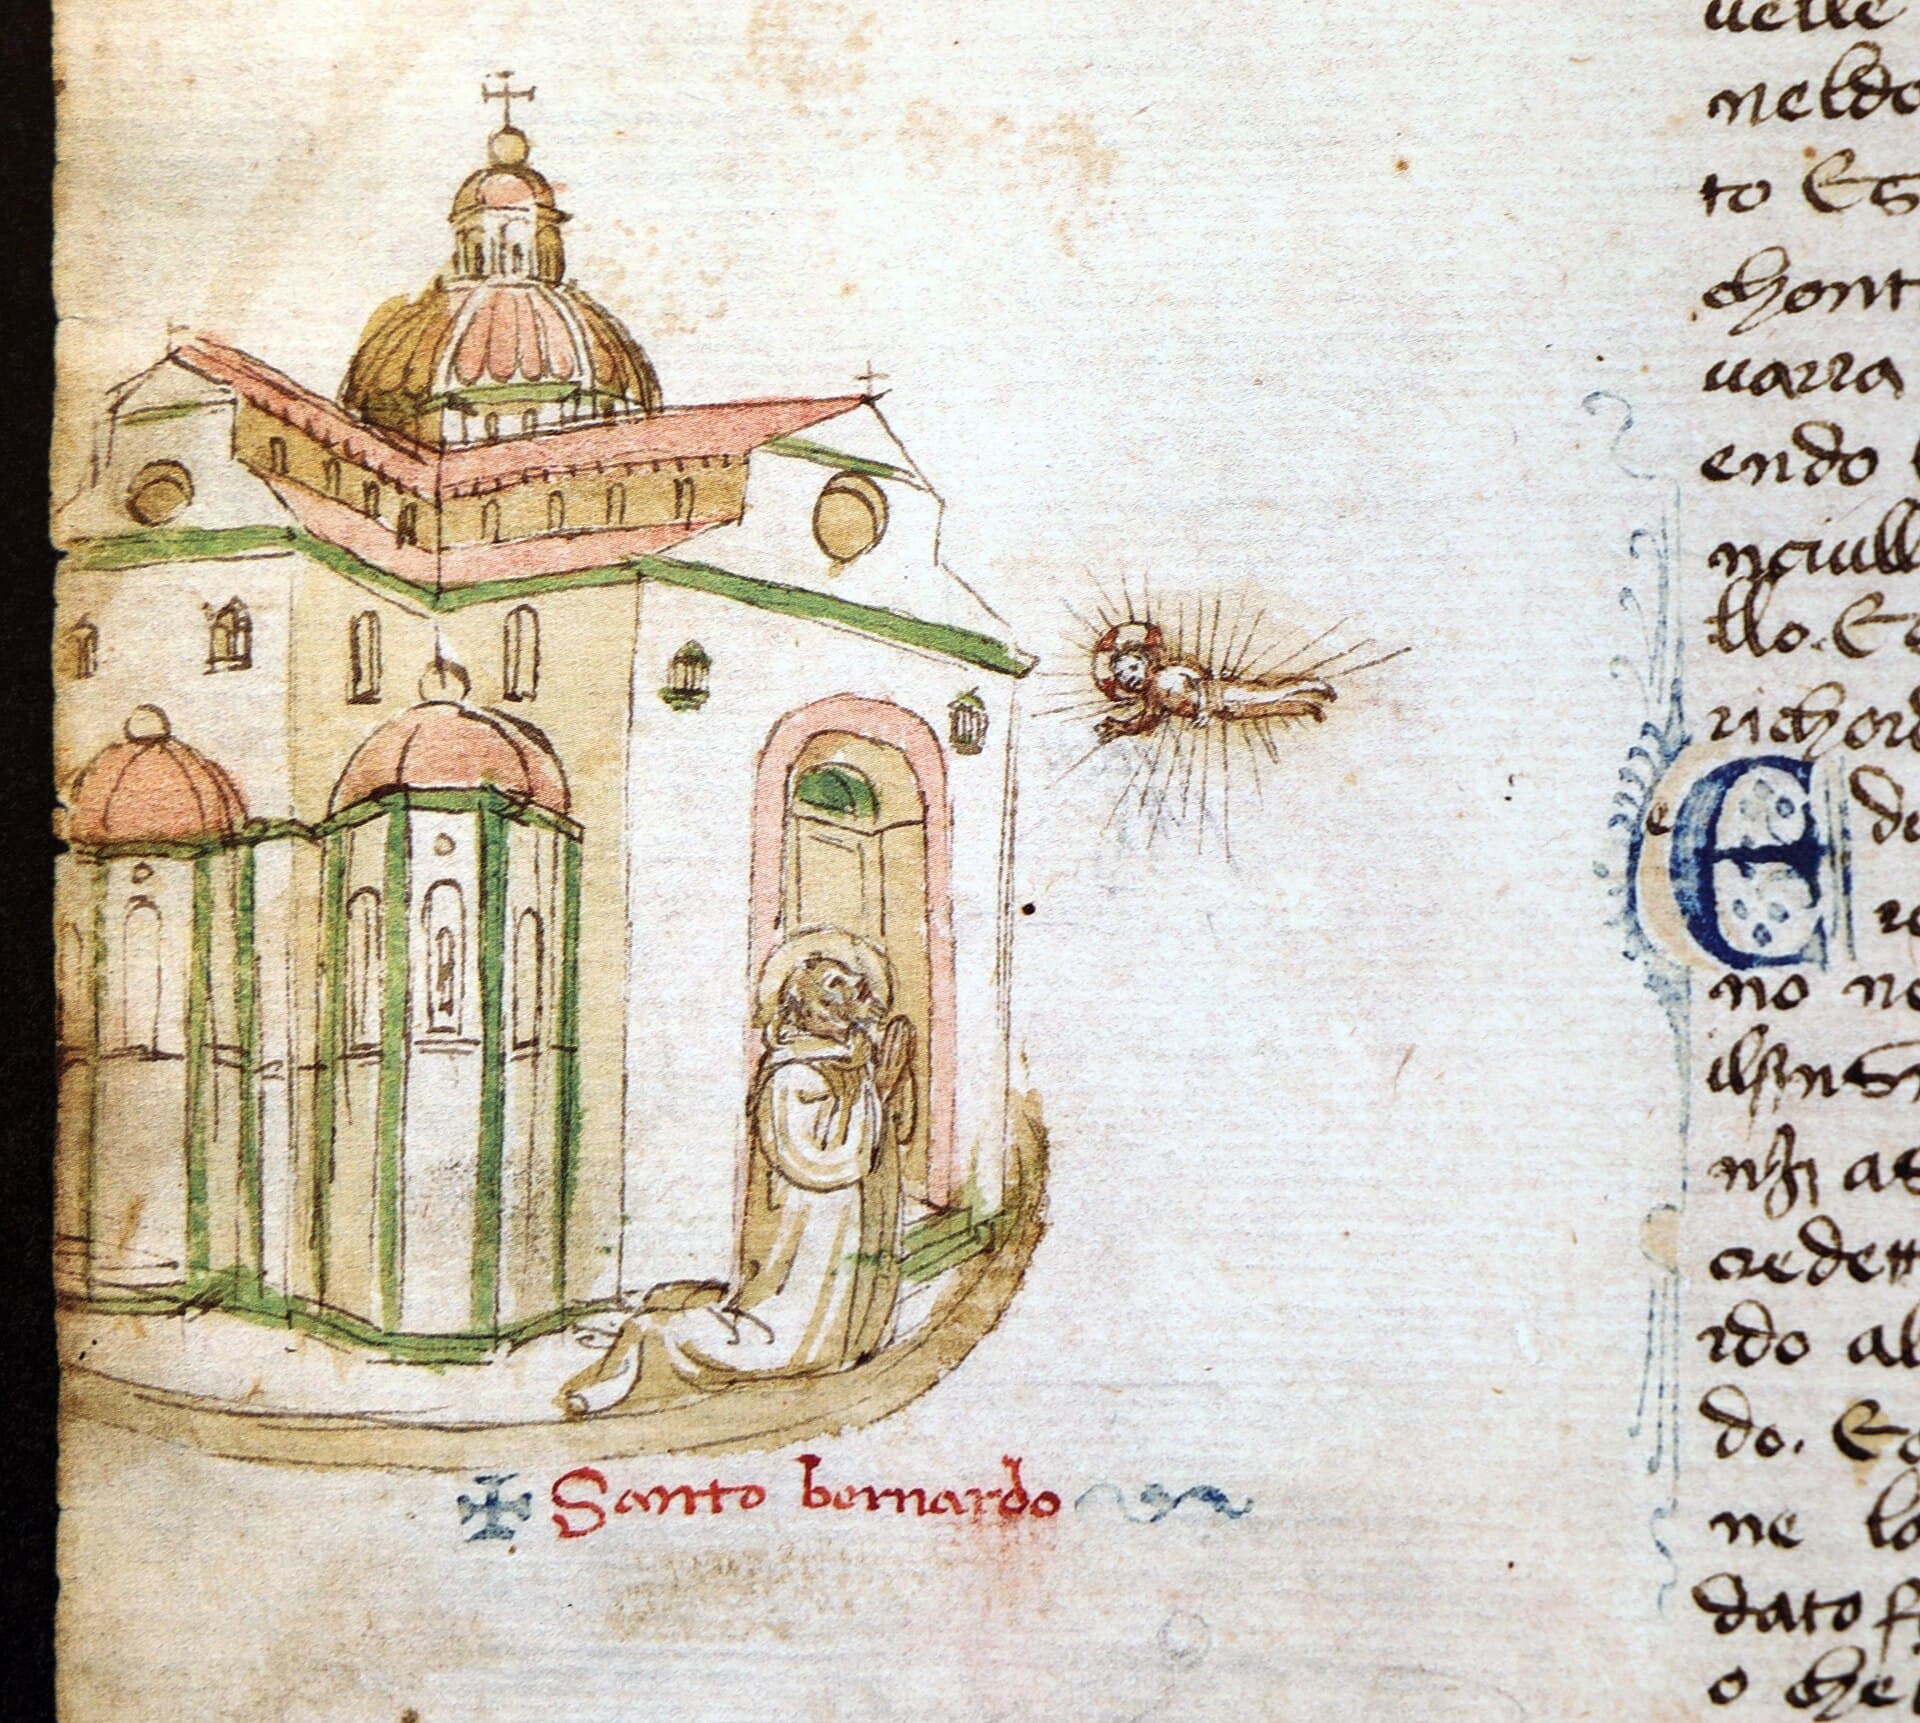 Santo bernardo
uelle
neldo
to Eg
chont
uarra
endo
nciull
llo. Eg
richord
E de
re
no ne
ilsing
nhi as
credett
rdo al
do. Eg
ne lo
dato fu
o chel